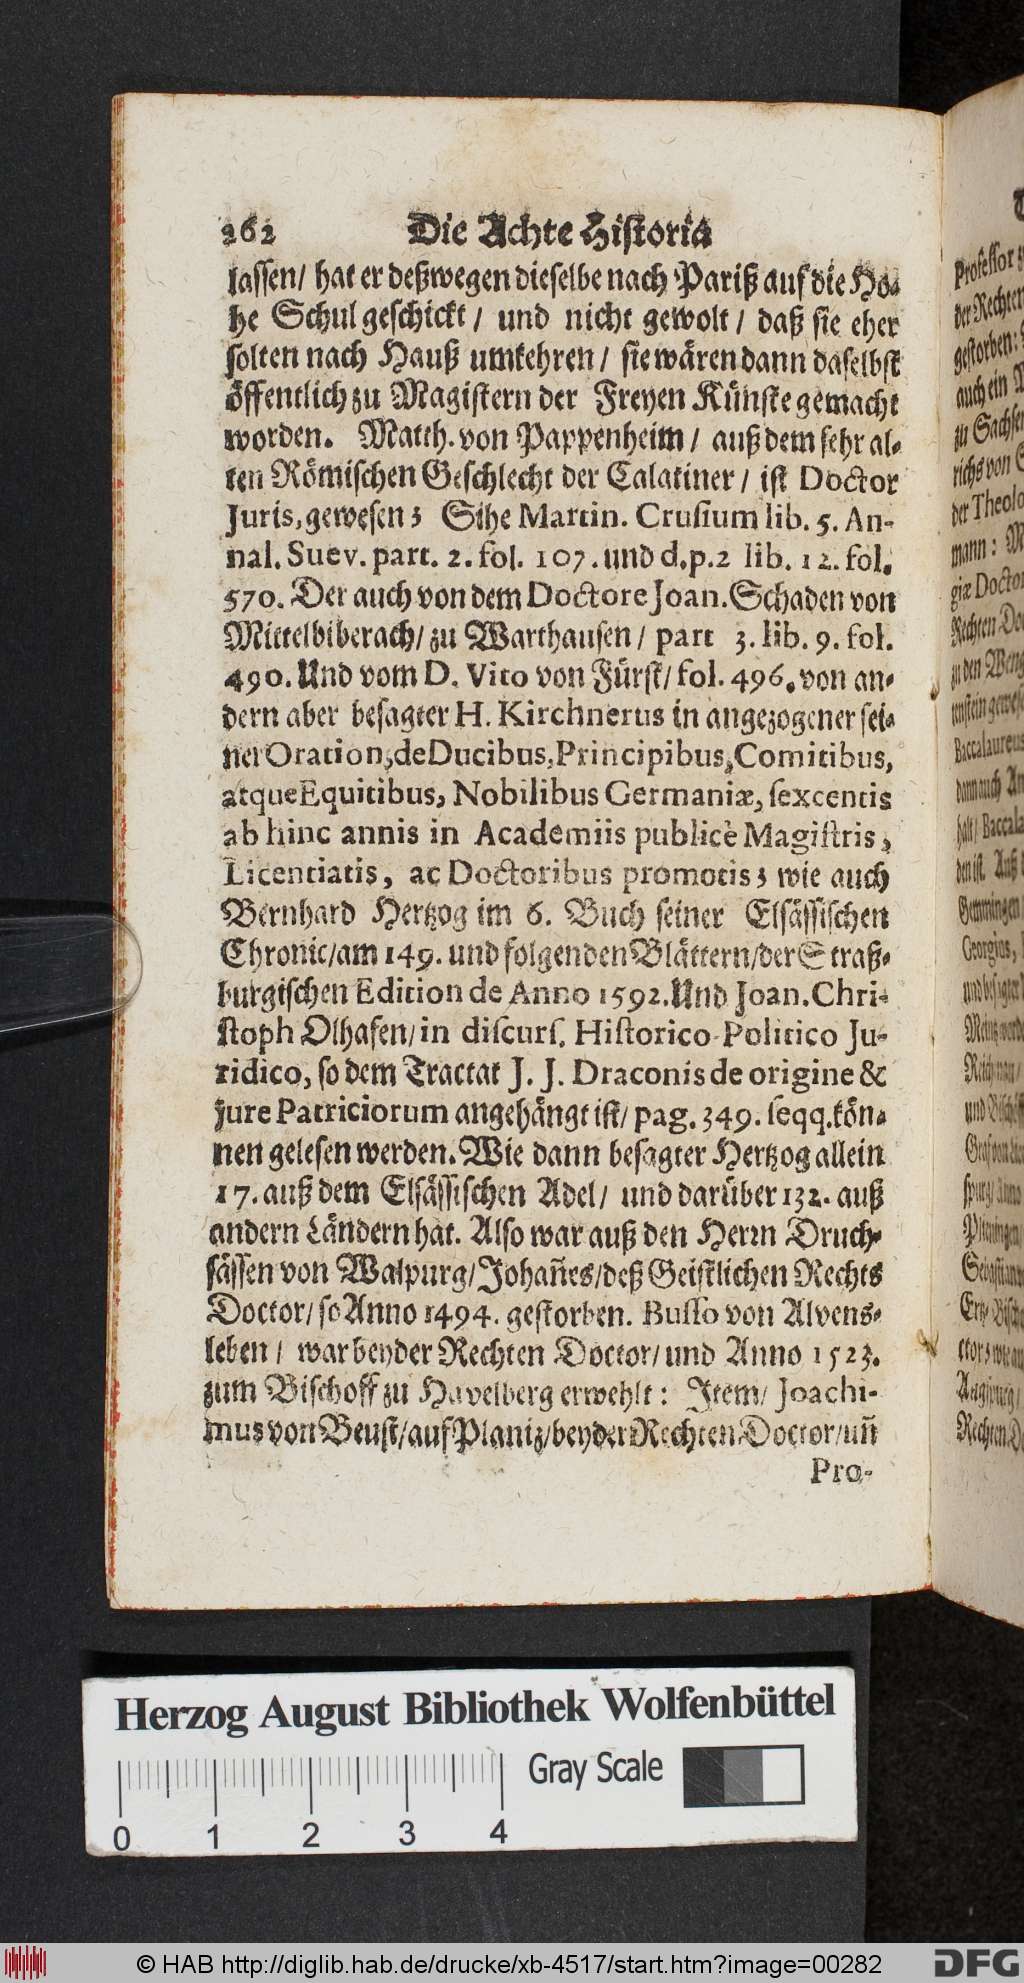 262 Die Achte Historia
lassen/ hat er deßwegen dieselbe nach Pariß auf die Ho-
he Schul geschickt / und nicht gewolt / daß sie eher
solten nach Hauß umkehren / sie wären dann daselbst
öffentlich zu Magistern der Freyen Künste gemacht
worden. Matth. von Pappenheim / auß dem sehr al-
ten Römischen Geschlecht der Calatiner / ist Doctor
Juris, gewesen; Sihe Martin. Crusium lib. 5. An-
nal. Suev. part. 2. fol. 107. und d. p. 2 lib. 12. fol.
570. Der auch von dem Doctore Joan. Schaden von
Mittelbiberach/ zu Warthausen / part 3. lib. 9. fol.
490. Und vom D. Vito von Fürst/ fol. 496. von an-
dern aber besagter H. Kirchnerus in angezogener sei-
ner Oration, de Ducibus, Principibus, Comitibus,
atque Equitibus, Nobilibus Germaniæ, sexcentis
ab hinc annis in Academiis publicè Magistris,
Licentiatis, ac Doctoribus promotis; wie auch
Bernhard Hertzog im 6. Buch seiner Elsässischen
Chronic/am 149. und folgenden Blättern/der Straß-
burgischen Edition de Anno 1592. Und Joan. Chri-
stoph Olhafen/ in discurs. Historico-Politico Ju-
ridico, so dem Tractat J. J. Draconis de origine &
jure Patriciorum angehängt ist/ pag. 349. seqq. kön-
nen gelesen werden. Wie dann besagter Hertzog allein
17. auß dem Elsässischen Adel / und darüber 132. auß
andern Ländern hat. Also war auß den Herrn Druch-
sässen von Walpurg/ Johañes/ deß Geistlichen Rechts
Doctor/ so Anno 1494. gestorben. Busso von Alvens-
leben / war beyder Rechten Doctor/ und Anno 1523.
zum Bischoff zu Havelberg erwehlt: Item/ Joachi-
mus von Beust/ auf Planiz/ beyder Rechten Doctor/ uñ
Pro-
Professor
der Rechten
gestorben:
auch ein
zu Sachsen
richs von
der Theolo
mann:
giæ Doctor
Rechten Do
zu den
Baccalaureus
dann auch
halt/ Baccala
den ist. Auß
Gemmingen
Georgius,
Rechten
Herzog August Bibliothek Wolfenbüttel
Gray Scale
0 1 2 3 4
© HAB http://diglib.hab.de/drucke/xb-4517/start.htm?image=00282
DFG